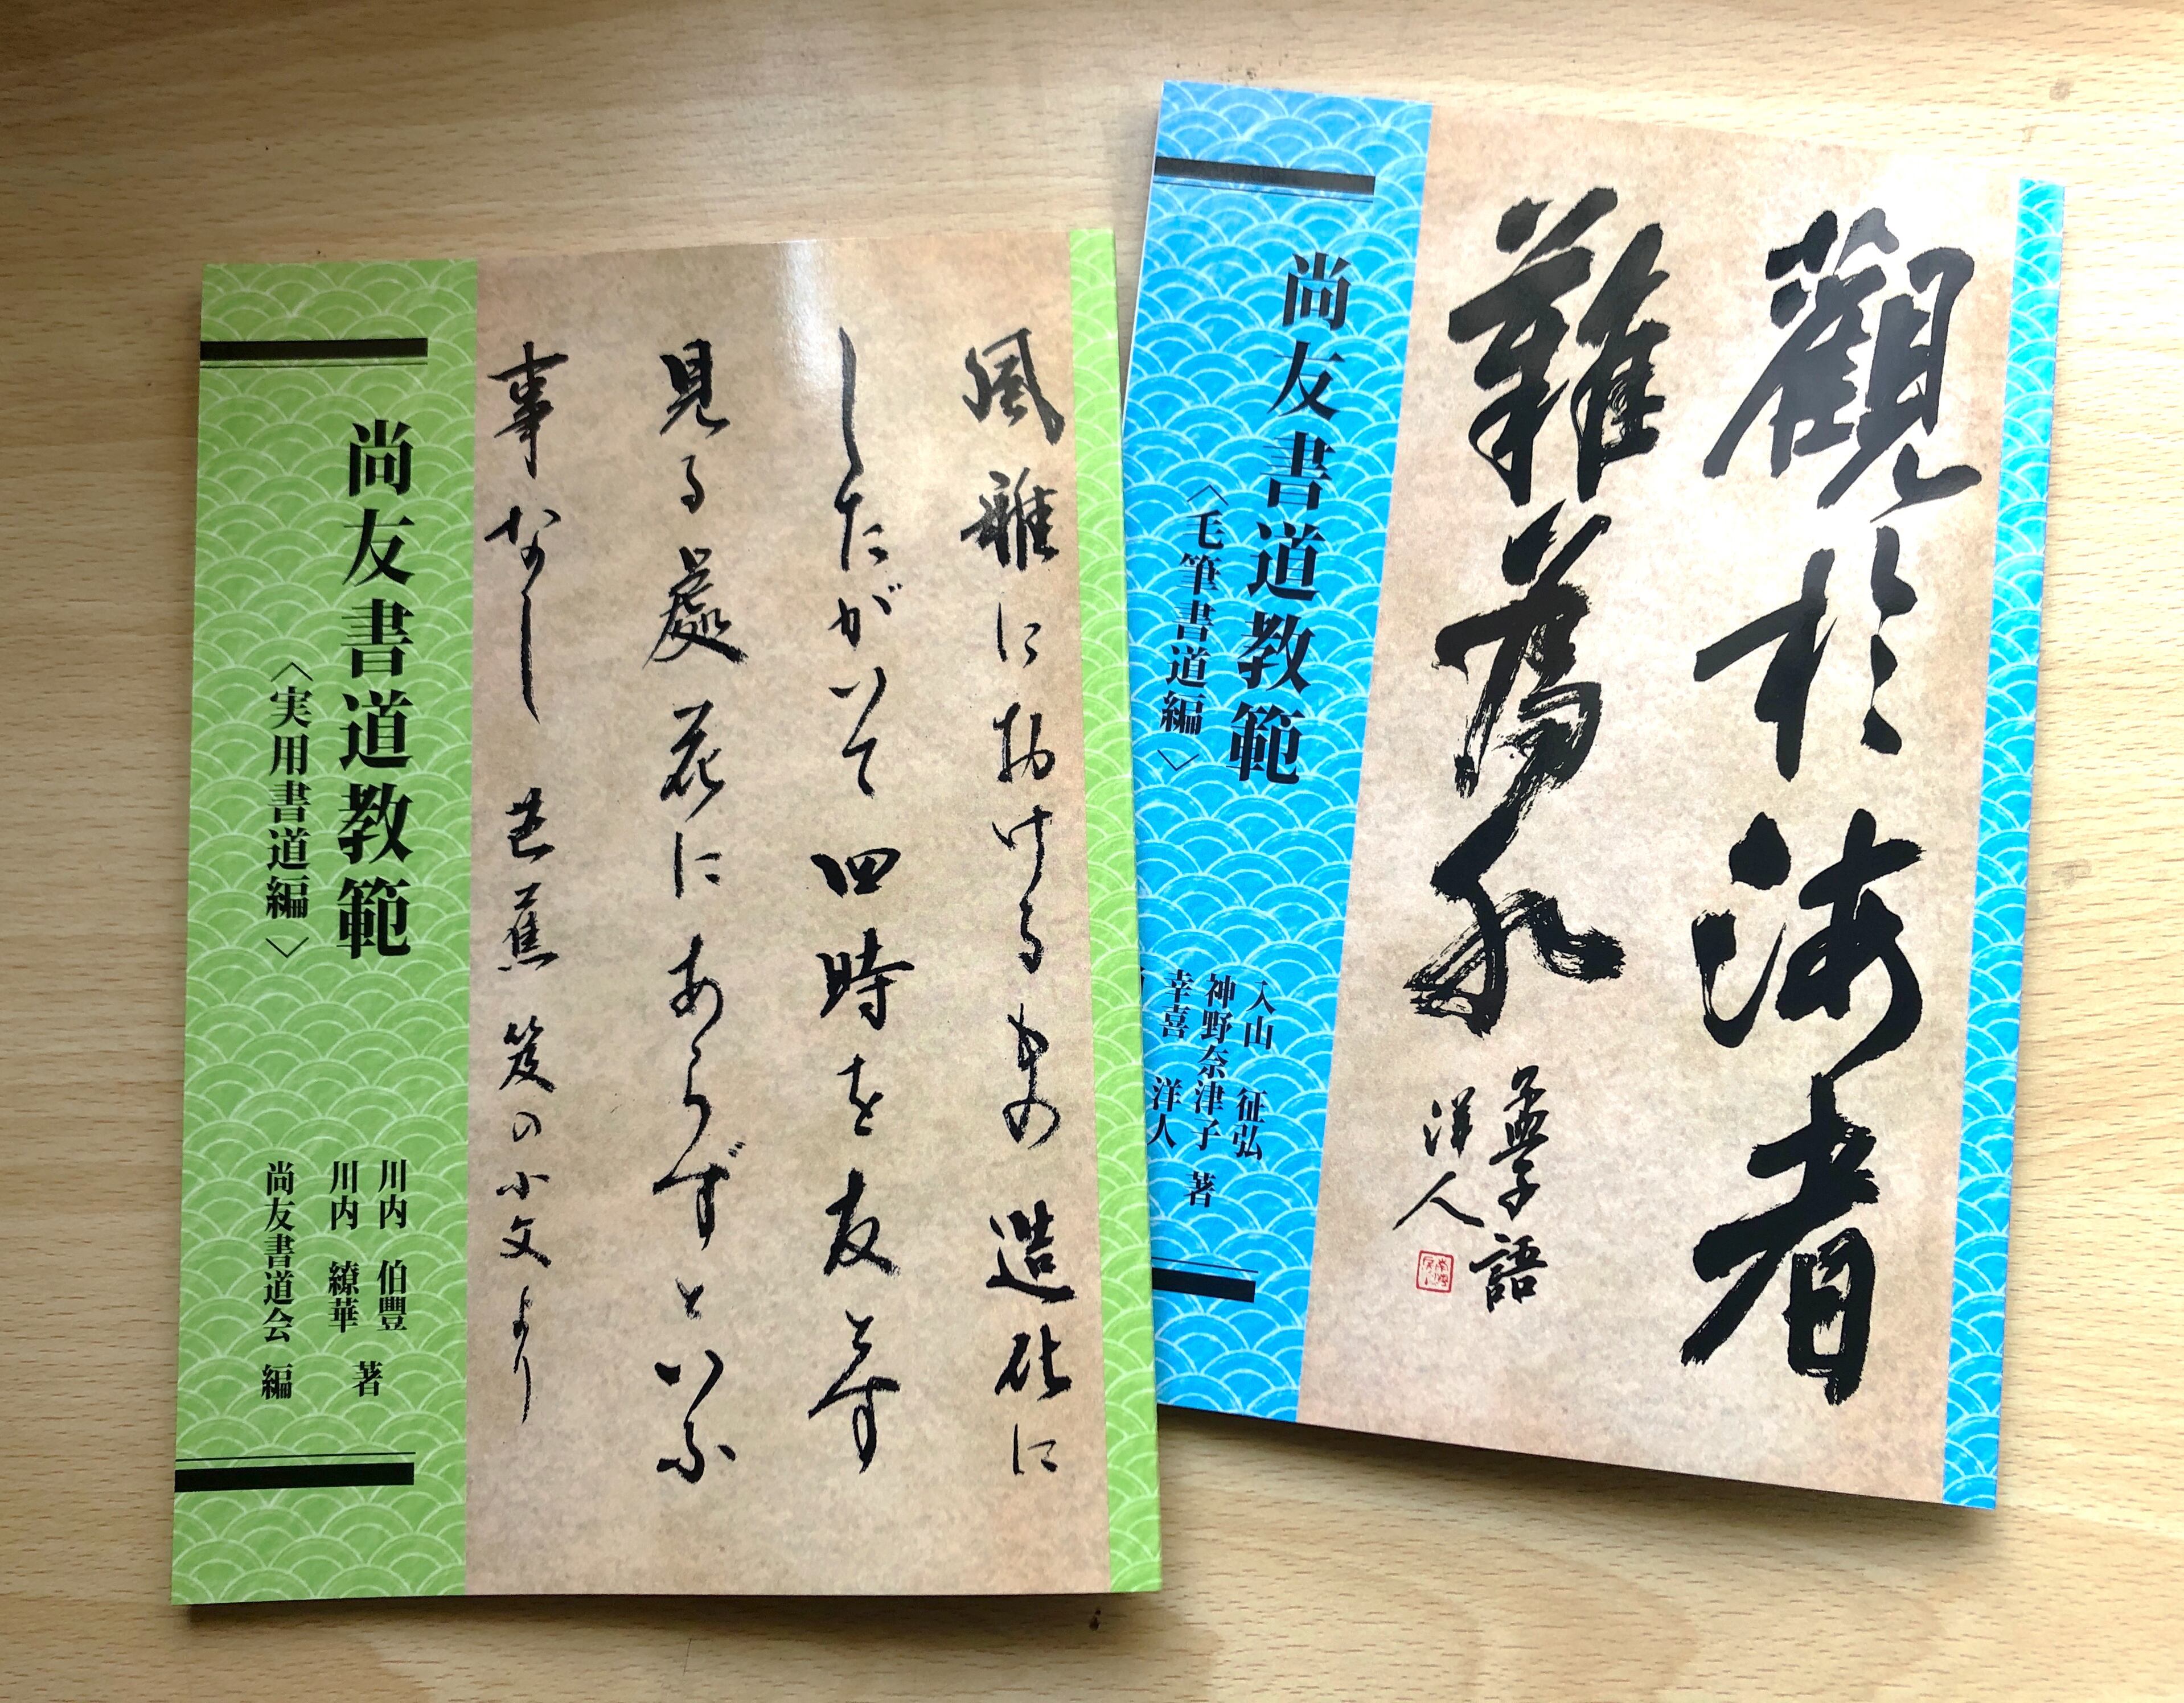 風雅におけるもの造化に
したがいて四時を友とす
見る處花にあらずといふ
事なし 芭蕉 笈の小文より
尚友書道教範
〈実用書道編〉
川内 伯豐
川内 繚華 著
尚友書道会 編
觀於海者
難為水
孟子語
洋人
尚友書道教範
〈毛筆書道編〉
入山 征弘
神野奈津子 著
幸喜 洋人